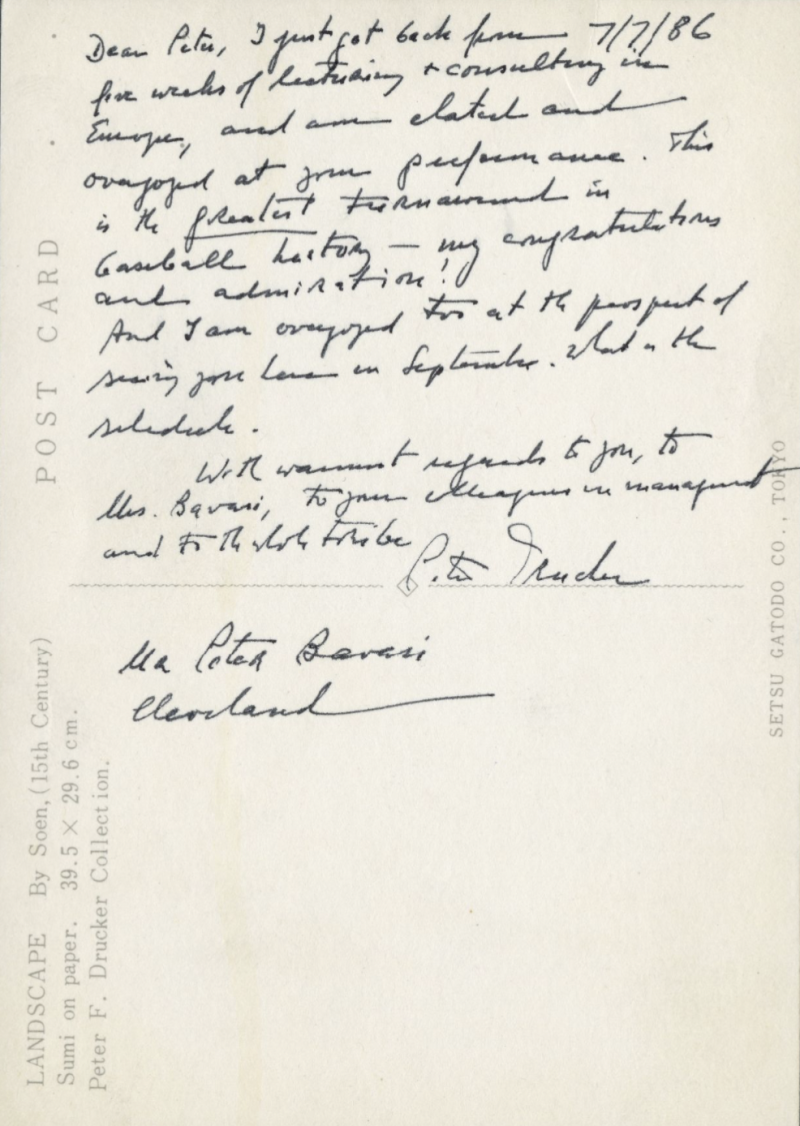 Dear Peter, I just got back from 7/7/86
five weeks of lecturing + consulting in
Europe, and am elated and
overjoyed at your performance. This
is the greatest turnaround in
baseball history — my congratulations
and admiration!
And I am overjoyed too at the prospect of
seeing you here in September. What is the
schedule.
With warmest regards to you, to
Mrs. Bavasi, to your colleagues in management
and to the whole tribe
Peter Drucker
Mr Peter Bavasi
Cleveland
POST CARD
LANDSCAPE By Soen, (15th Century)
Sumi on paper. 39.5 × 29.6 cm.
Peter F. Drucker Collection.
SETSU GATODO CO., TOKYO